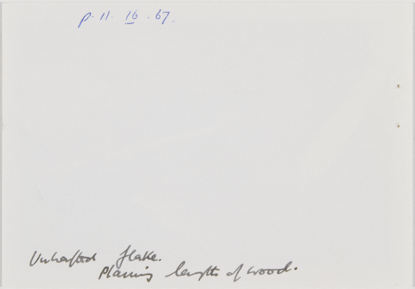 p. 11. 16. 67.
Unhafted flake.
Planing lengths of wood.